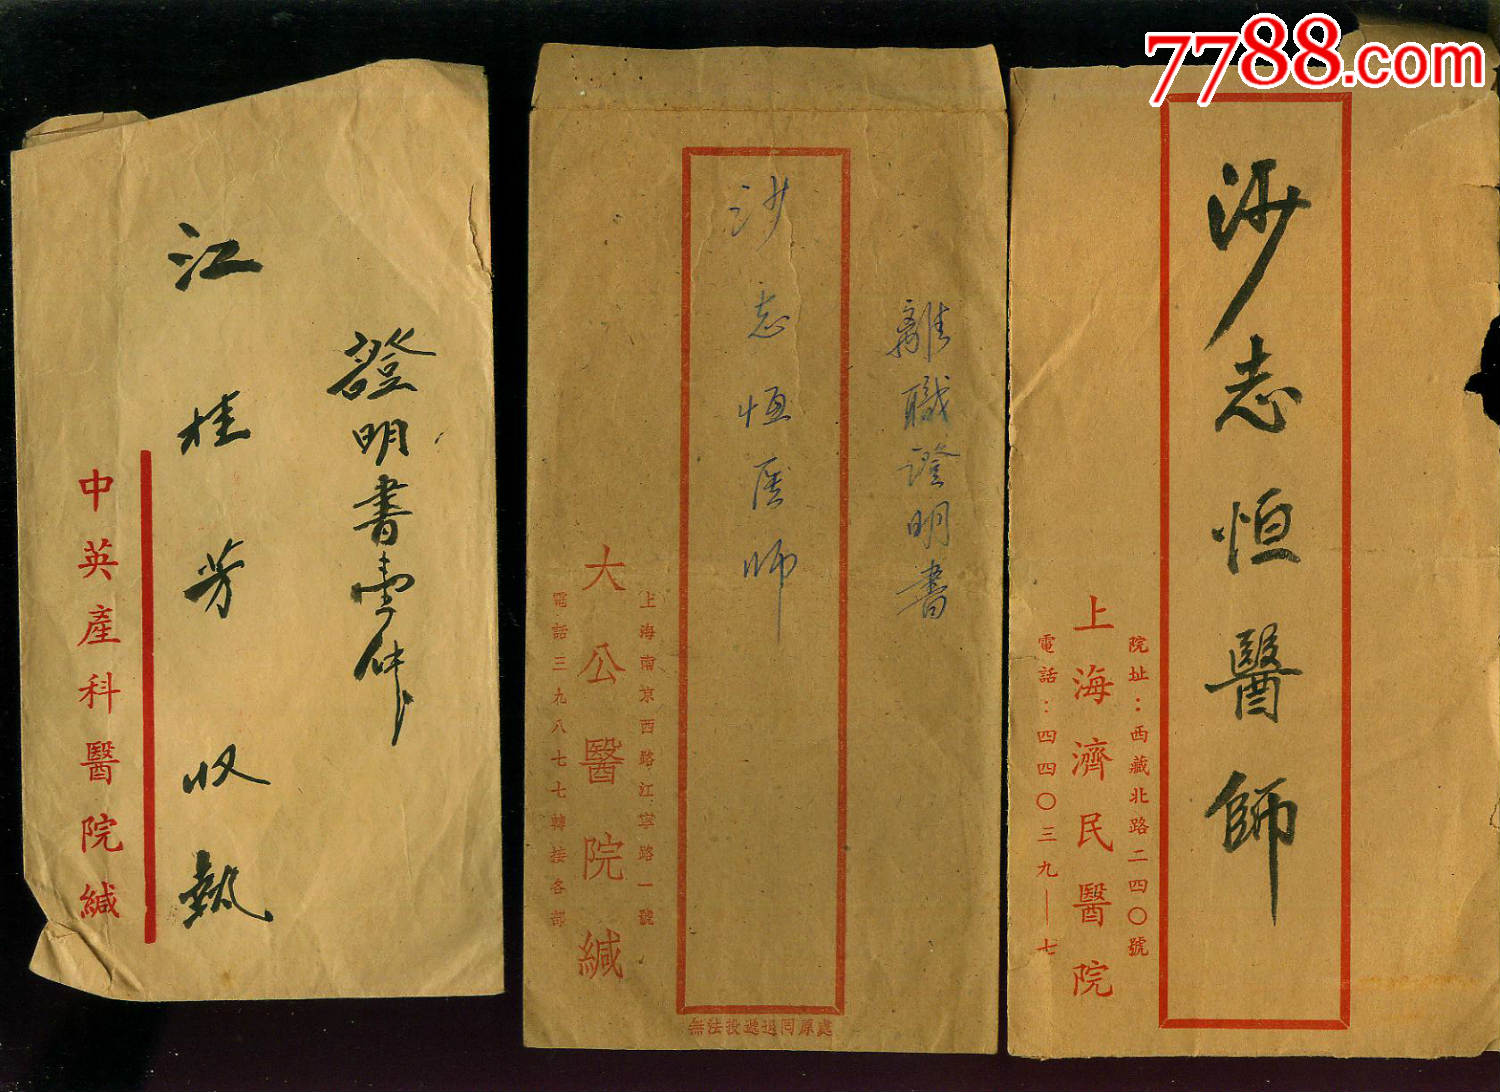 7788.com
證明書壹件
江桂芳收執
中英產科醫院緘
離職證明書
沙志恒医師
上海南京西路江寧路一號
大公醫院緘
電話三九八七七轉接各部
無法投遞退回原處
沙志恒醫師
院址：西藏北路二四〇號
上海濟民醫院
電話：四四〇三九——七